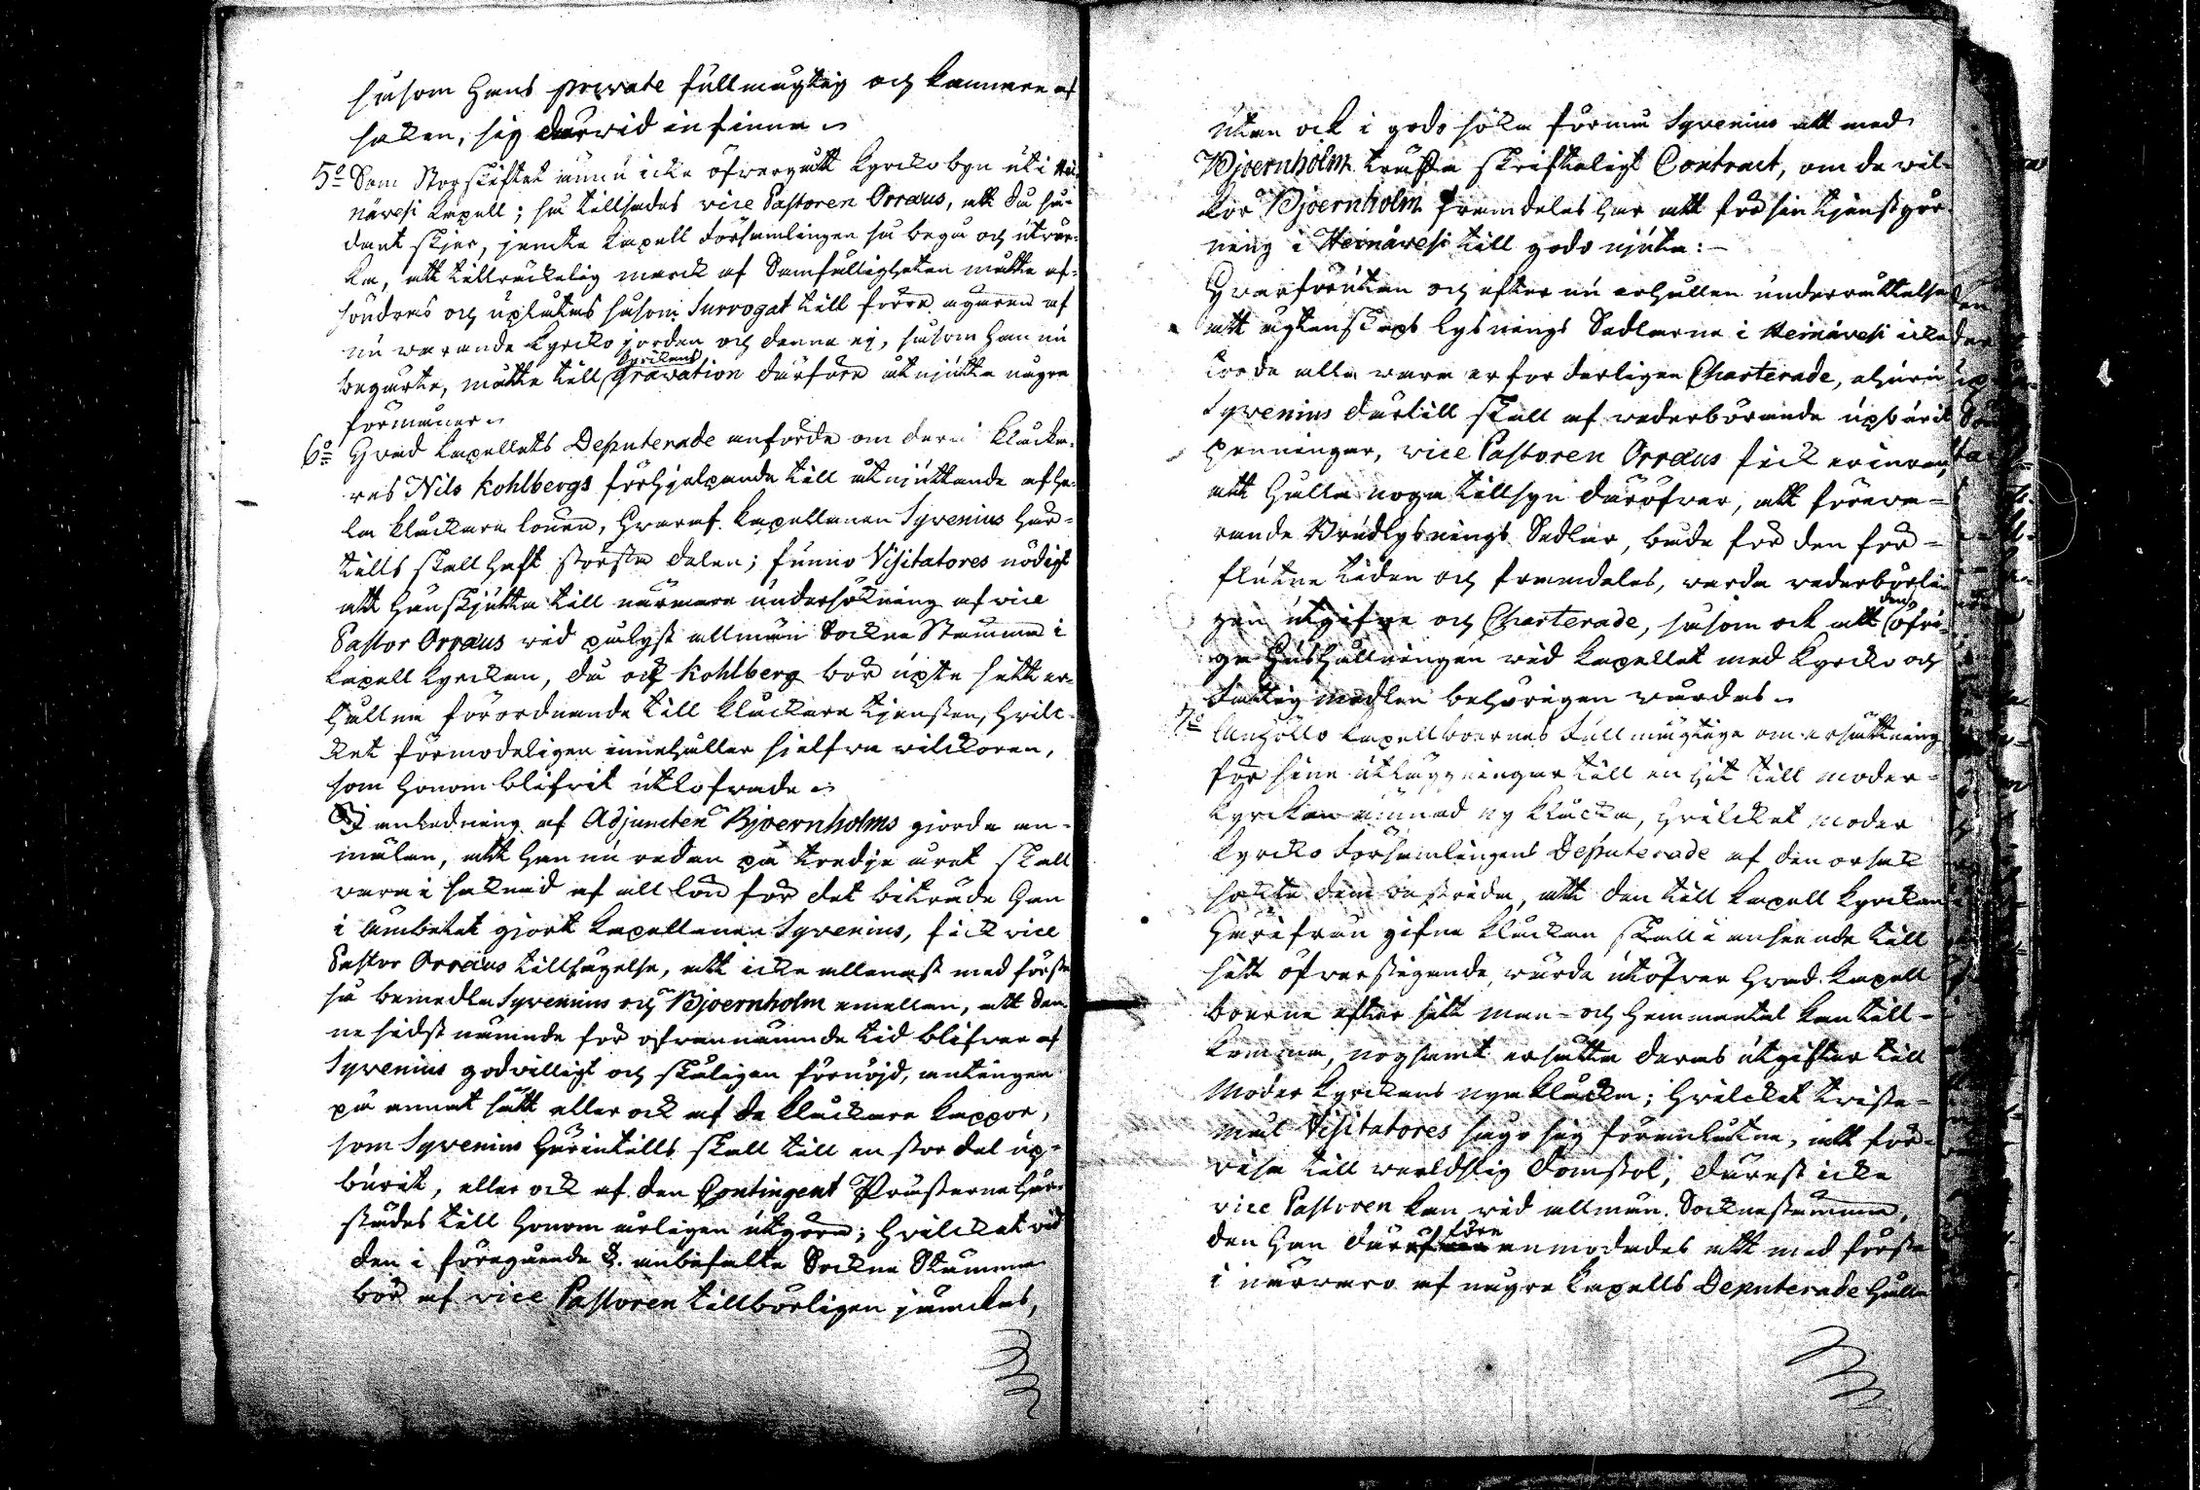 såsom Hans private fullmägtig och kännare af
saken, sig därwid infinna.
5o Som Storskiftet ännu icke öfvergått Kyrckobyn uti Hei-
näwesi Kapell; så tillsades vice Pastoren Orræus, att då så-
dant skjer, jemte Kapell Församlingen så bega och utwär-
ka, att tillräckelig marck af Samfälligheten måtte af-
söndras och uplåtas såsom Surrogat till förra ägaren af
nu warande Kyrckojorden och denne ej, såsom han nu
begärte, måtte till Kyrckans gravation därföre åtnjuta några
förmåner.
6o Hvad Kapellets Deputerade anförde om deras Klocka-
res Nils Kohlbergs förhjelpande till åtnjuttande af he-
la Klockare lönen, hvaraf Kapellanen Syrenius här-
tills skall haft största delen; funno Visitatores nödigt
att hänskjutta till närmare undersökning af vice
Pastor Orræus wid pålyst allmän Sockne Stämma i
Kapell Kyrckan, då ock Kohlberg bör upte sitt er-
hållne förordnande till Klockare tjensten, hvilc-
ket förmodeligen innehåller sielfva wilckoren,
som honom blifvit utlofvade.
I anledning af Adjuncten Bjoernholms giorde an-
mälan, att han nu redan på tredje året skall
vara i saknad af all lön för det biträde han
i Ämbetet gjort Kapellanen Syrenius, fick vice
Pastor Orræus tillsägelse, att icke allenast med första
så bemedla Syrenius och Bjoernholm emellan, att den-
ne sidst nämnde för ofvannämnde tid blifver af
Syrenius godvilligt och skäligen förnöjd, antingen
på annat sätt eller ock af de Klockare Kappor,
som Syrenius härintills skall till en stor del up-
burit, eller ock af den Contingent Prästerne här-
städes till honom årligen utgöra; hvilcket wid
den i föregående §. anbefalte Sockne Stämma
bör af vice Pastoren tillbörligen jämckas,
utan ock i godo söka förmå Syrenius att med
Bjoernholm träffa skrifteligt Contract, om de wil-
kor Bjoernholm framdeles har att för sin tjenstgör-
ning i Heinäwesi till godo njuta:-
Hvarförutan och efter nu erhållen underrättelse
att ägtenskaps lysnings Sedlarne i Heinäwesi icke
torde alla wara erforderligen Charterade, ehuru
Syrenius dertill skall af wederbörande upburit
penningar, vice Pastoren Orræus fick erinran,
att hålla noga tillsyn däröfver, att förewa-
rande Brudlysnings Sedlar, både för den för-
flutne tiden och framdeles, warda wederbörli-
gen utgifne och Charterade, såsom ock att den öfri-
ga Hushållningen wid Kapellet med Kyrcko och
Fattig medlen behörigen wårdas.
7o Anhöllo Kapellboernas Fullmägtige om ersättning
för sine utläggningar till en hit till moder-
kyrckan ämnad ny Klocka, hvilcket moder
Kyrcko Församlingens Deputerade af den orsak
sökte dem bestrida, att den till Kapell Kyrckan
härifrån gifne Klockan skall i anseende till
sitt öfverstigande wärde utöfver hvad Kapell
boerne efter sitt man- och hemmantal kan till-
komma, nogsamt ersätta deras utgifter till
Moder Kyrckans nya Klocka; hvilcket twiste-
mål Visitatores sågo sig föranlåtne, att för-
visa till werldslig Domstol, därest icke
vice Pastoren kan wid allmän Sockne stämma,
den han därföre anmodades att med första
i närvaro af några Kapells Deputerade hålla